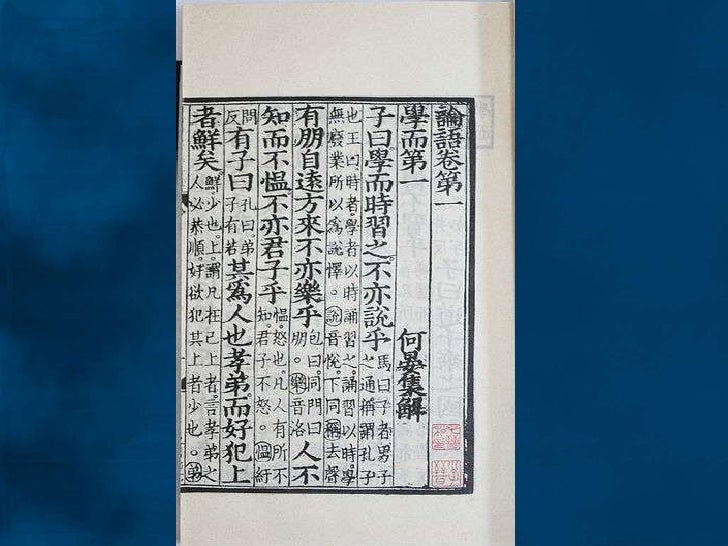 論語卷第一
學而第一 何晏集解
子曰學而時習之不亦説乎馬曰子者男子之通稱謂孔子
也王曰時者學者以時誦習之誦習以時學無廢業所以爲説懌。説音悦下同稱去聲
有朋自遠方來不亦樂乎包曰同門曰朋。樂音洛人不
知而不慍不亦君子乎慍怒也凡人有所不知君子不怒。慍紆
問反有子曰孔曰弟子有若其爲人也孝弟而好犯上
者鮮矣鮮少也上謂凡在己上者言孝弟之人必恭順好欲犯其上者少也。弟